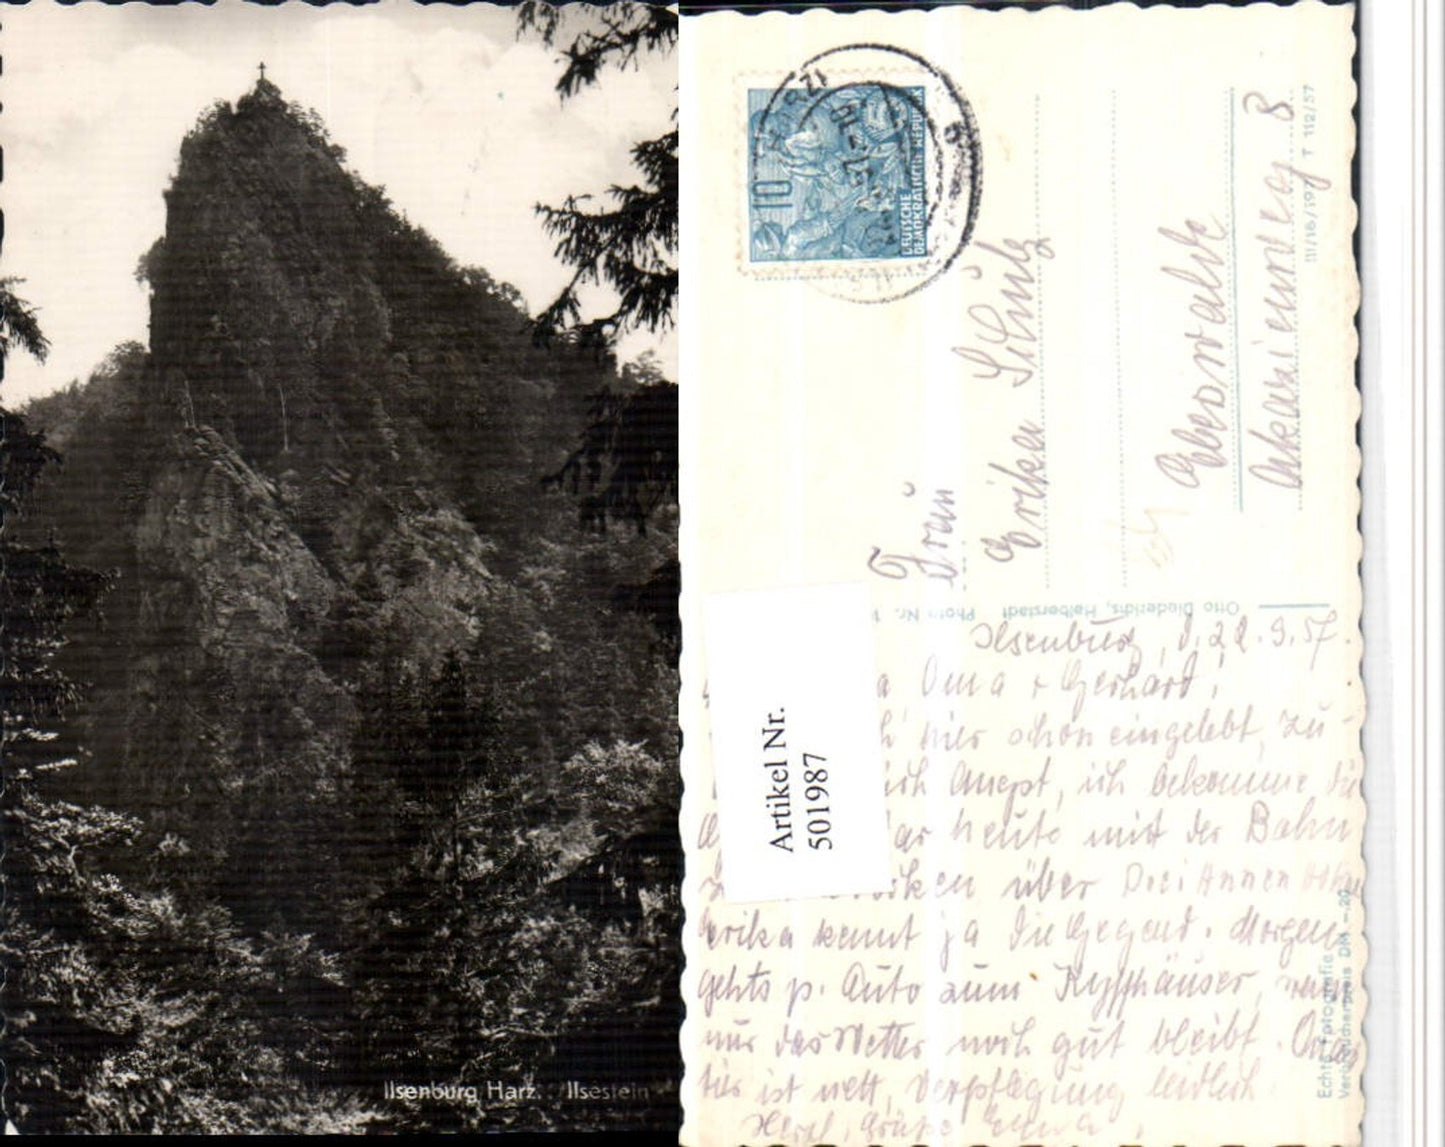 Ilsenburg Harz. Ilsestein
10
DEUTSCHE
DEMOKRATISCHE REPUBLIK
Frau
Erika Schulz
Eberswalde
Oskarienweg 8
III/18/197 T 112/57
Otto Diederichs, Halberstadt Photo Nr.
Artikel Nr.
501987
Ilsenburg, d. 22.9.57.
Oma + Gerhard!
hier schon eingelebt, zu
ich bekomme die
heute mit der Bahn
über Drei Annen
Erika kennt ja die Gegend. Morgen
gehts p. Auto zum Kyffhäuser, wenn
nur das Wetter noch gut bleibt.
ist nett, Verpflegung leidlich
Herzl. Grüße
Echte Fotografie
Verbraucherpreis DM -.20